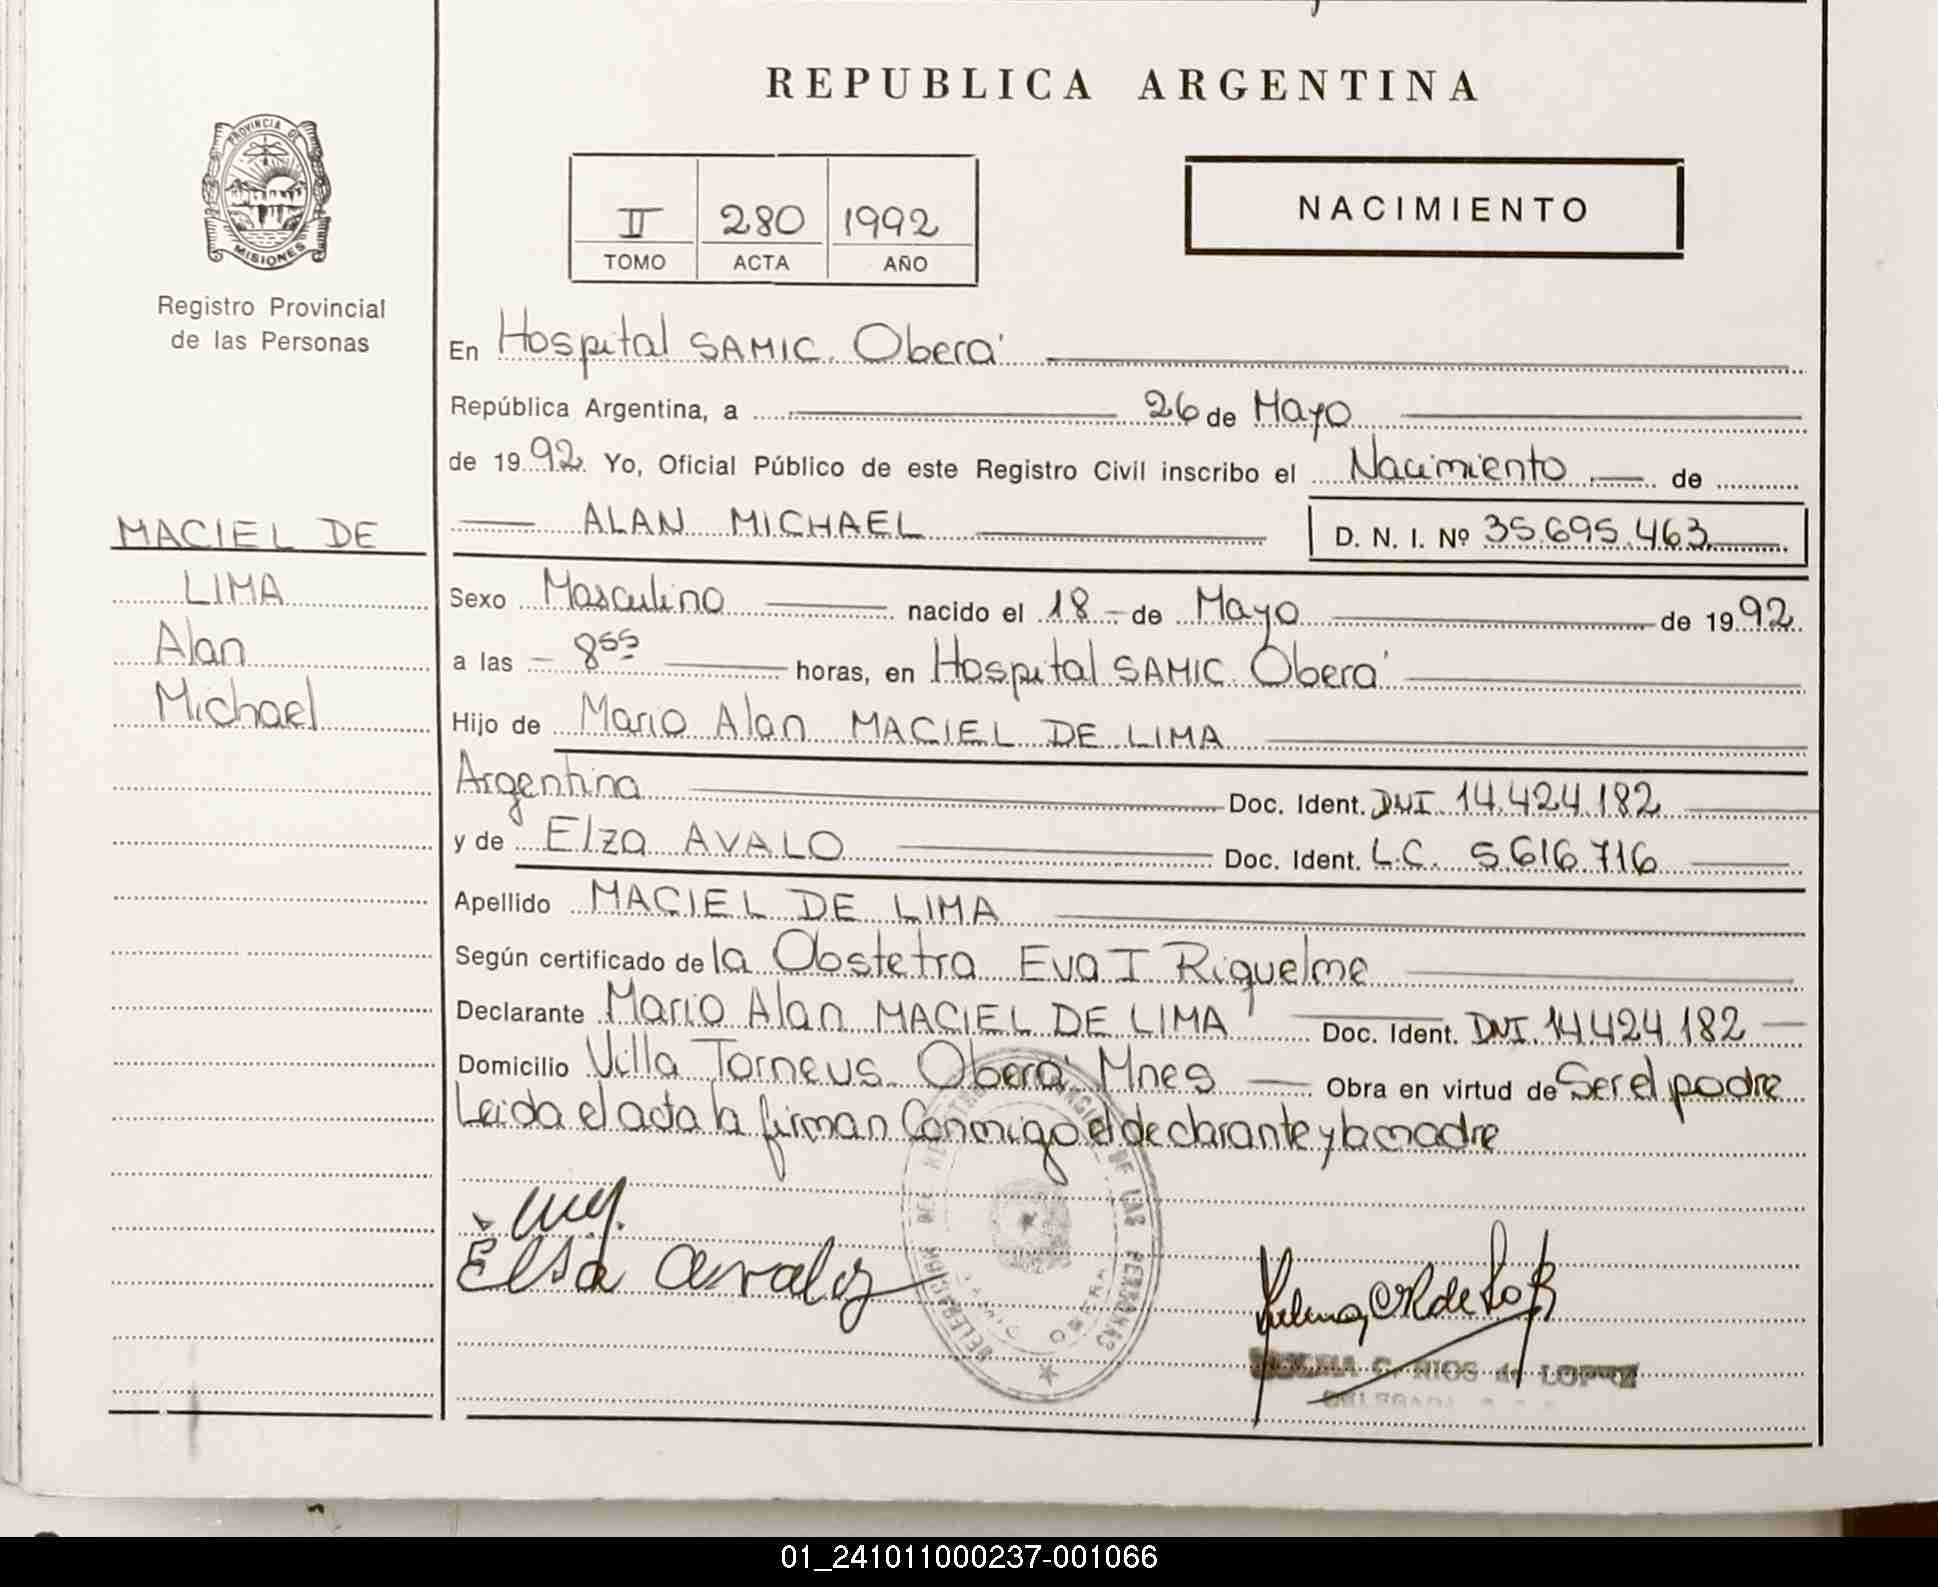 REPUBLICA ARGENTINA
PROVINCIA DE
MISIONES
Registro Provincial
de las Personas
II 280 1992
TOMO ACTA AÑO
NACIMIENTO
En Hospital SAMIC. Oberá
República Argentina, a 26 de Mayo
de 1992. Yo, Oficial Público de este Registro Civil inscribo el Nacimiento de
ALAN MICHAEL D. N. I. Nº 35.695.463
MACIEL DE
LIMA
Alan
Michael
Sexo Masculino nacido el 18 de Mayo de 1992
a las 8⁵⁵ horas, en Hospital SAMIC. Oberá
Hijo de Mario Alan MACIEL DE LIMA
Argentina Doc. Ident. DNI. 14.424.182
y de Elza AVALO Doc. Ident. L.C. 5.616.716
Apellido MACIEL DE LIMA
Según certificado de la Obstetra Eva I Riquelme
Declarante Mario Alan MACIEL DE LIMA Doc. Ident. DNI. 14.424.182
Domicilio Villa Torneus. Oberá Mnes Obra en virtud de Ser el padre
Leida el acta la firman Conmigo el declarante y la madre
Elsa
DE LAS PERSONAS
DELEGACION
OBERA
C. RIOS de LOPEZ
01_241011000237-001066